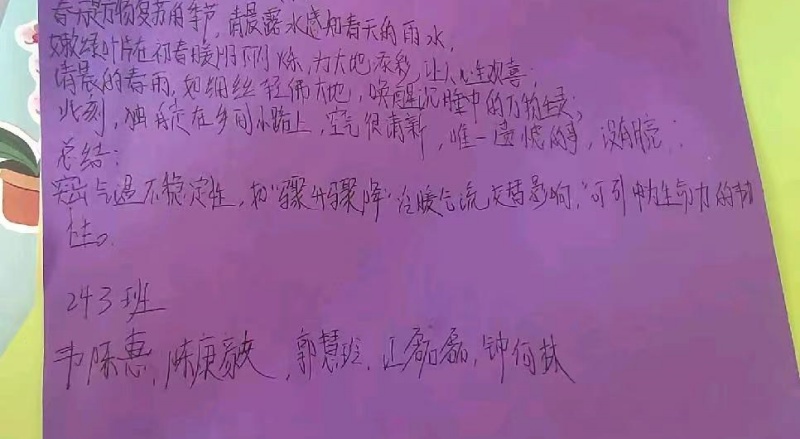 春天是万物复苏的季节，清晨露水感知春天的雨水，
嫩绿叶片在初春暖阳闪烁，为大地添彩，让人心生欢喜；
清晨的春雨，如细丝轻佛大地，唤醒沉睡中的万物生灵；
此刻，独自走在乡间小路上，空气很清新，唯一遗憾的事，没有腕；
总结：
突出气温不稳定性，如“骤升骤降”冷暖气流交替影响，“可引申为生命力的韧
性。
243班
韦陈惠，陈康，郭慧玲，江磊磊，钟何林